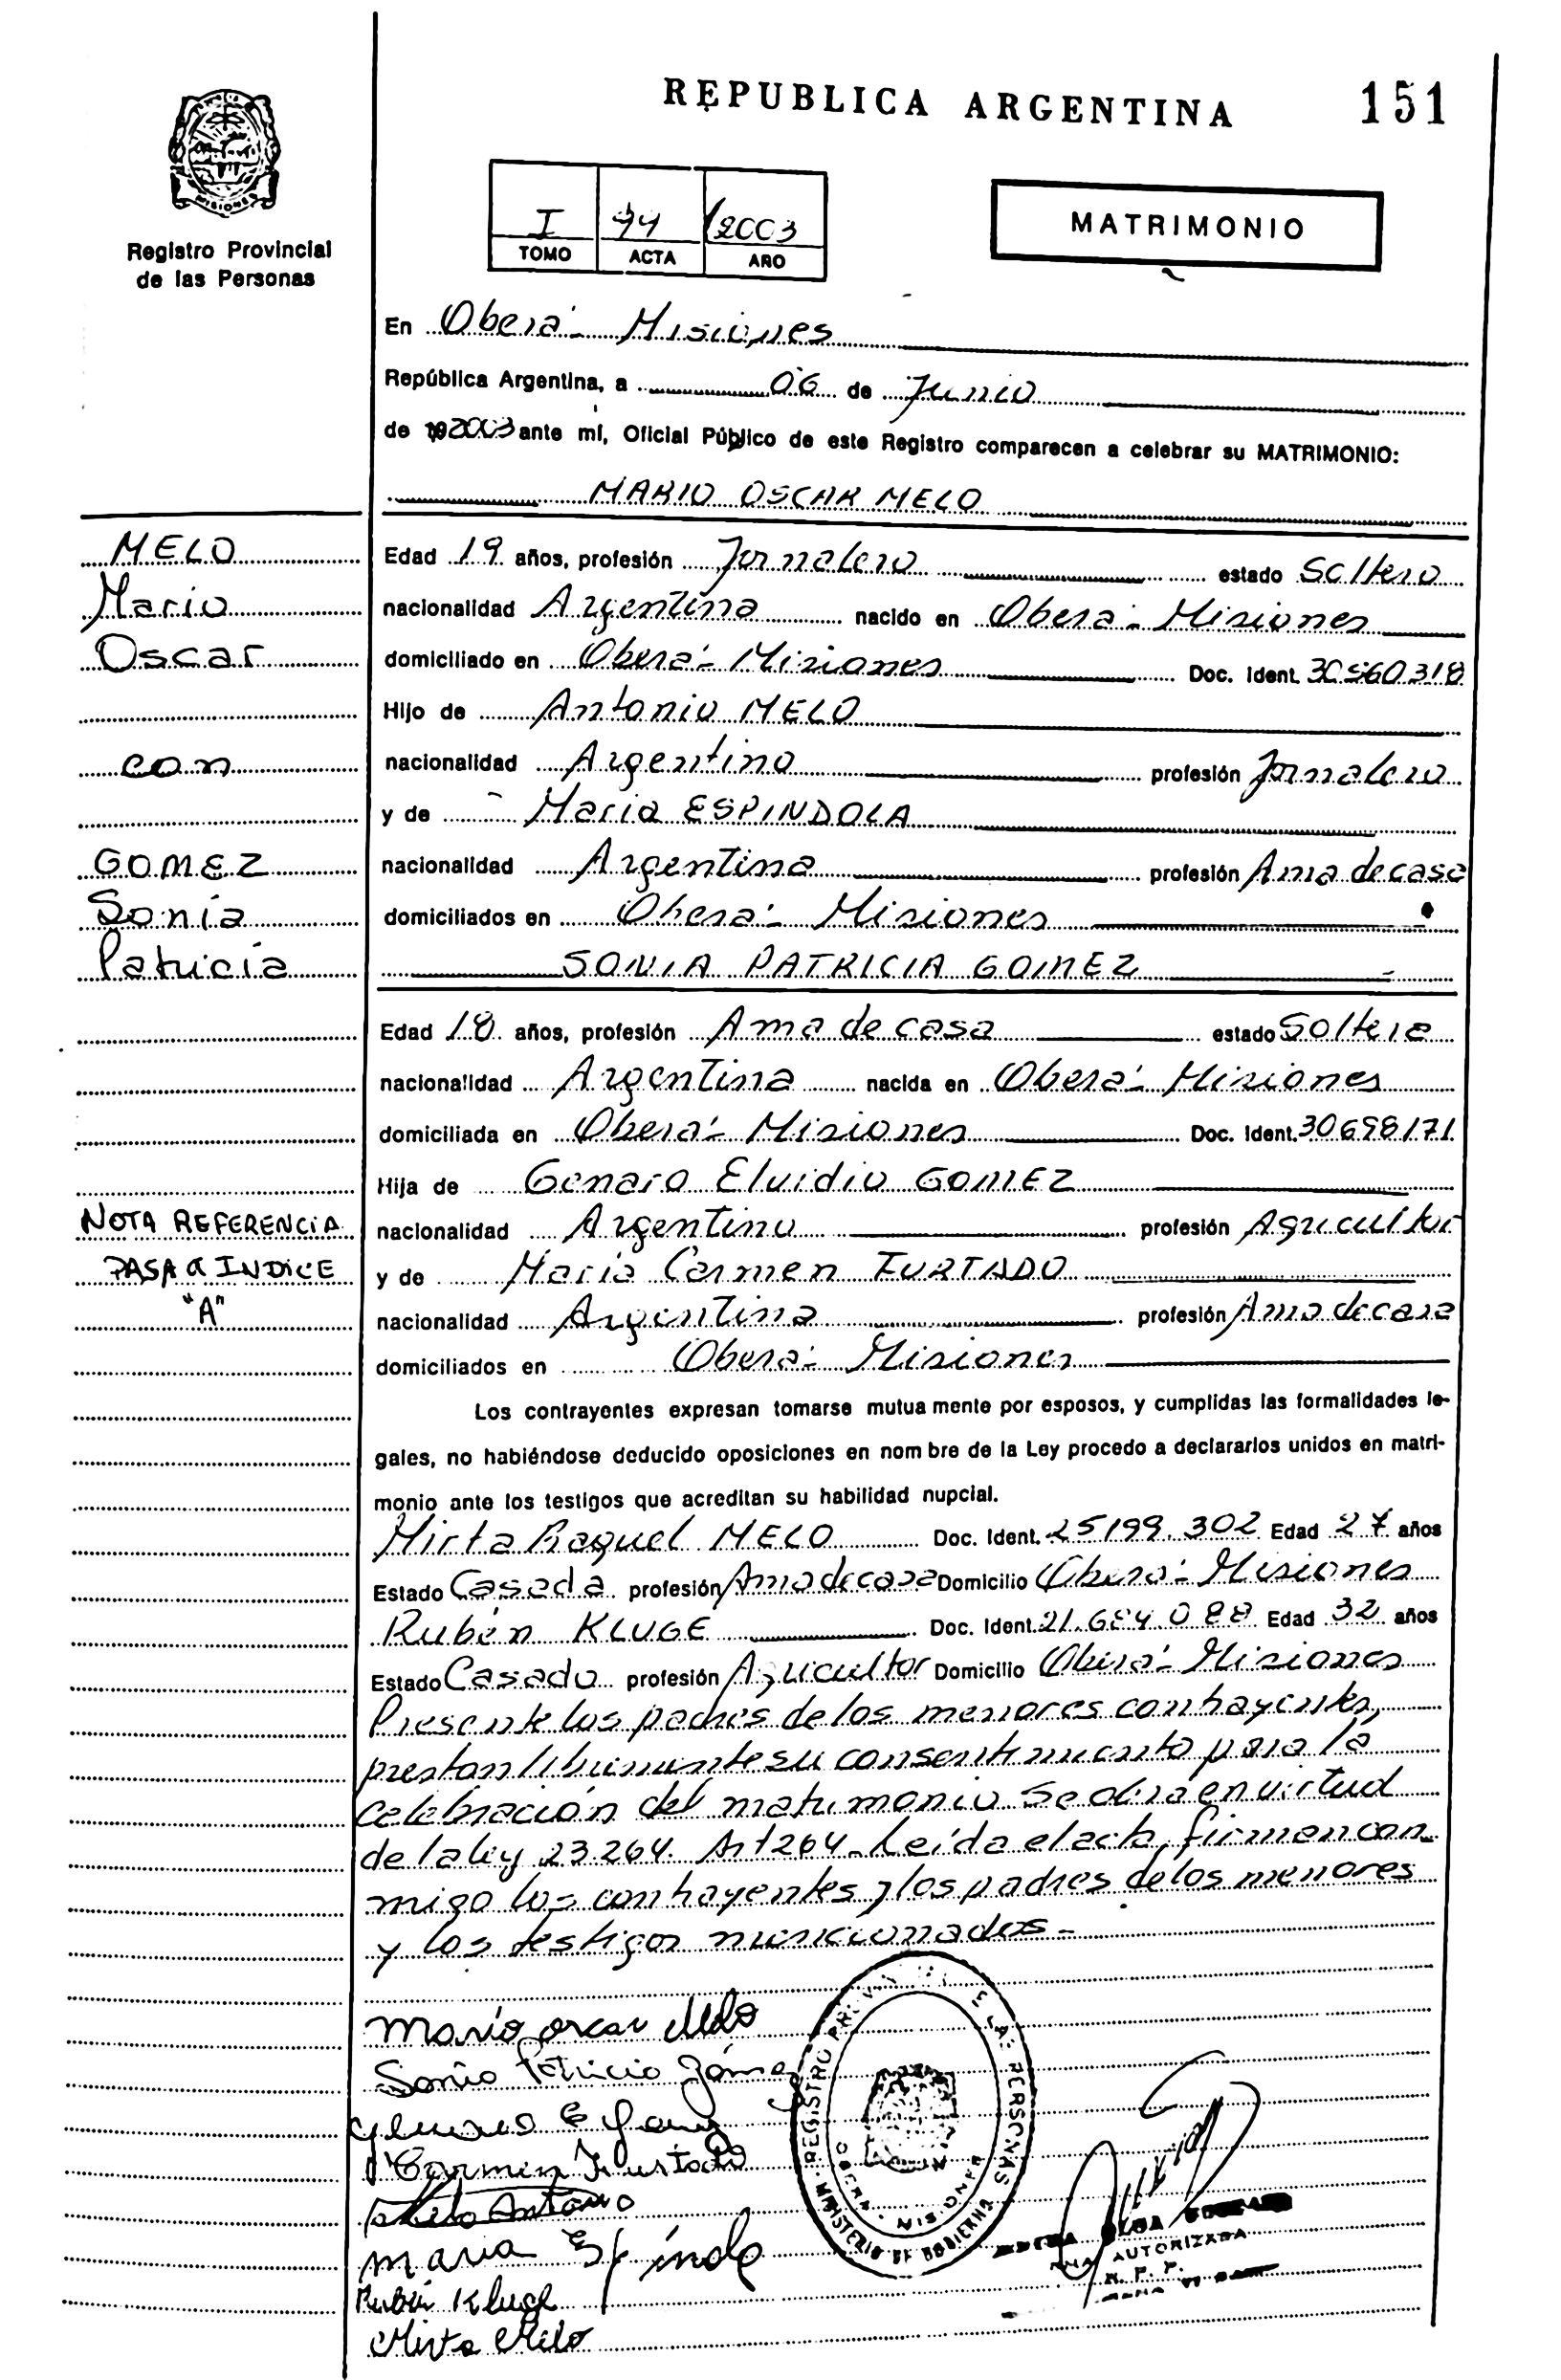 REPUBLICA ARGENTINA 151
MISIONES
Registro Provincial
de las Personas
I 94 2003
TOMO ACTA AÑO
MATRIMONIO
En Oberá - Misiones
República Argentina, a 06 de Junio
de 192003 ante mí, Oficial Público de este Registro comparecen a celebrar su MATRIMONIO:
MARIO OSCAR MELO
MELO
Mario
Oscar
con
GOMEZ
Sonia
Patricia
Edad 19 años, profesión Jornalero estado Soltero
nacionalidad Argentina nacido en Oberá - Misiones
domiciliado en Oberá - Misiones Doc. Ident. 30560318
Hijo de Antonio MELO
nacionalidad Argentino profesión Jornalero
y de Maria ESPINDOLA
nacionalidad Argentina profesión Ama de casa
domiciliados en Oberá - Misiones
SONIA PATRICIA GOMEZ
Edad 18 años, profesión Ama de casa estado Soltera
nacionalidad Argentina nacida en Oberá - Misiones
domiciliada en Oberá - Misiones Doc. Ident. 30698171
Hija de Genaro Elvidio GOMEZ
NOTA REFERENCIA
PASA a INDICE
"A"
nacionalidad Argentino profesión Agricultor
y de Maria Carmen FURTADO
nacionalidad Argentina profesión Ama de casa
domiciliados en Oberá - Misiones
Los contrayentes expresan tomarse mutua mente por esposos, y cumplidas las formalidades le-
gales, no habiéndose deducido oposiciones en nom bre de la Ley procedo a declararlos unidos en matri-
monio ante los testigos que acreditan su habilidad nupcial.
Mirta Raquel MELO Doc. Ident. 25199.302 Edad 27 años
Estado Casada profesión Ama de casa Domicilio Oberá - Misiones
Rubén KLUGE Doc. Ident. 21.684.088 Edad 32 años
Estado Casado profesión Agricultor Domicilio Oberá - Misiones
Presente los padres de los menores contrayentes,
prestan libremente su consentimiento para la
celebración del matrimonio. Se obra en virtud
de la ley 23.264. Art 264. Leída el acta, firman con-
migo los contrayentes y los padres de los menores
y los testigos mencionados -
Mario oscar Melo
Sonia Patricia Gómez
Carmen Furtado
Melo Antonio
Maria Espíndola
Rubén Kluge
Mirta Melo
REGISTRO PERSONAS
MINISTERIO DE GOBIERNO
OBERA - MISIONES
AUTORIZADA
R. P. P.